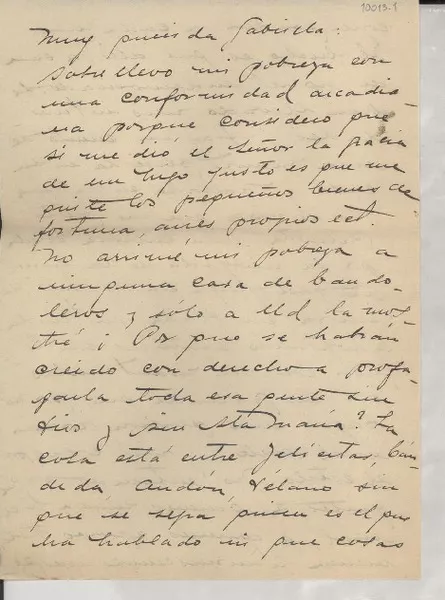 10013.1
Muy querida Gabriela:
Sobrellevo mi pobreza con
una conformidad arcadia-
na porque considero que
si me dió el Señor la gracia
de un hijo justo es que me
quite los pequeños bienes de
fortuna, aires propios ect.
No arrimé mi pobreza a
ninguna casa de bando-
leros y sólo a Ud la mos-
tré ¿Por que se habrán
creido con derecho a
toda esa gente sin
Dios y sin Sta María? La
cosa está entre Felicitas, Cán-
dida Andón, Délano sin
que se sepa quien es el que
ha hablado ni que cosas